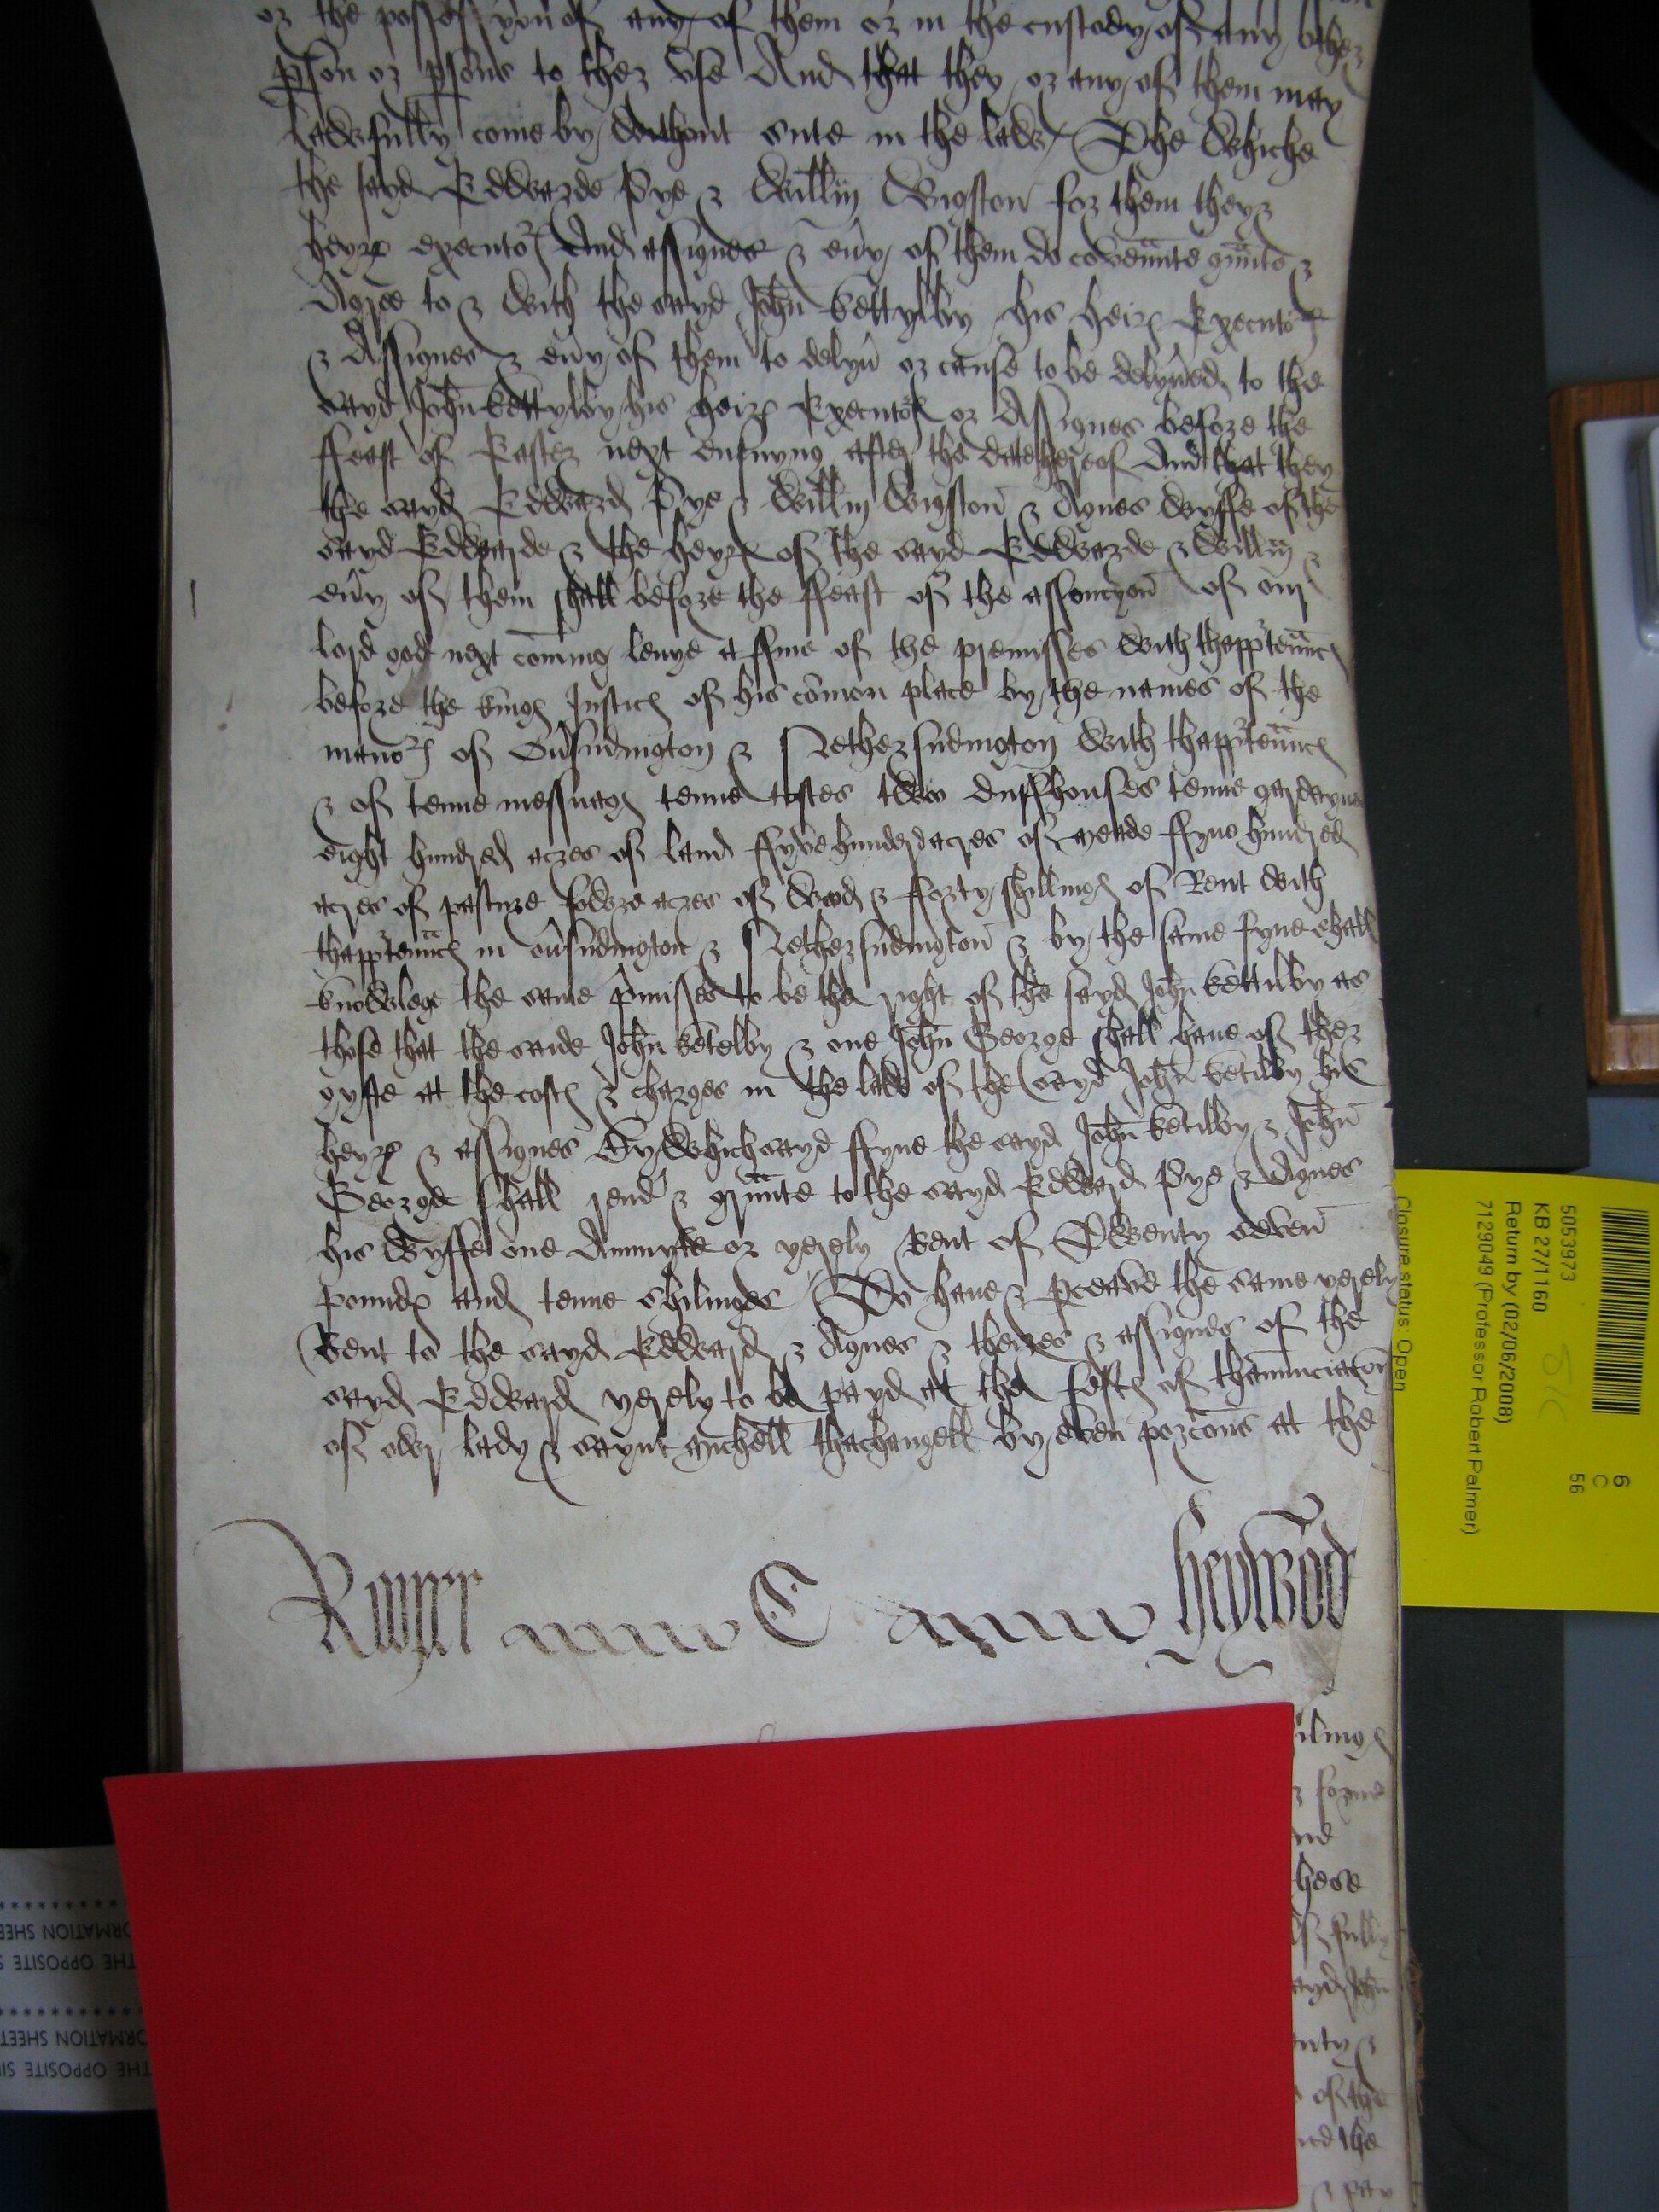 or the possessyon of any of them or in the custody of any other
pson or psons to ther use And that they or any of them may
lawfully come by without sute in the lawe The whiche
the sayd Edwarde Pye & Willm Wigston for them theyr
heyres executors And assignes & eny of them do covennte graunte &
Agree to & with the sayd John kettylby his heires Executors
& Assignes & eny of them to delyu or cause to be delyued to the
sayd John kettylby his heires Executors or Assignes before the
ffeast of Easter next ensuyng after the date hereof And that they
the sayd Edward Pye & Willm Wigston & Agnes wyffe of the
sayd Edwarde & the heyres of the sayd Edwarde & Willm &
eny of them shall before the ffeast of the assencyon of our
lord god next coming levye a ffine of the premisses with thapptennces
before the kinges Justices of his comon place by the names of the
manors of Ousudington & Nethersudington with thapptennces
& of tenne messuages tenne toftes two duffhouses tenne gardeynes
eight hundred acres of land ffyve hunderd acres of meade ffyve hundred
acres of pasture fowre acres of wood & fforty shillinges of Rent with
thapptennces in ousudington & Nethersudington & by the same fyne shall
knowlege the same pmisses to be the right of the sayd John kettilby as
those that the saide John ketelby & one John George shall have of ther
gyfte at the costes & charges in the lawe of the sayd John ketilby his
heyres & assignes By which sayd ffyne the sayd John ketilby & John
George shall rend & graunte to the sayd Edward Pye & Agnes
his wyffe one Annuyte or yerely Rent of Twenty seven
poundes and tenne shilinges To have & pceave the same yerely
Rent to the sayd Edward & Agnes & theires & assignes of the
sayd Edward yerely to be payd at the festes of thannunciacon
of owr lady & saynt Michell tharchangell by even porcons at the
Roger heywod
ilinges
& forme
hese
fully
sayd John
& 
of the
and the
& pay
5053973
KB 27/1160
Return by (02/06/2008)
7129049 (Professor Robert Palmer)
Closure status: Open
6
C
56
THE OPPOSITE SI
ORMATION SHEET
THE OPPOSITE S
ORMATION SHEE